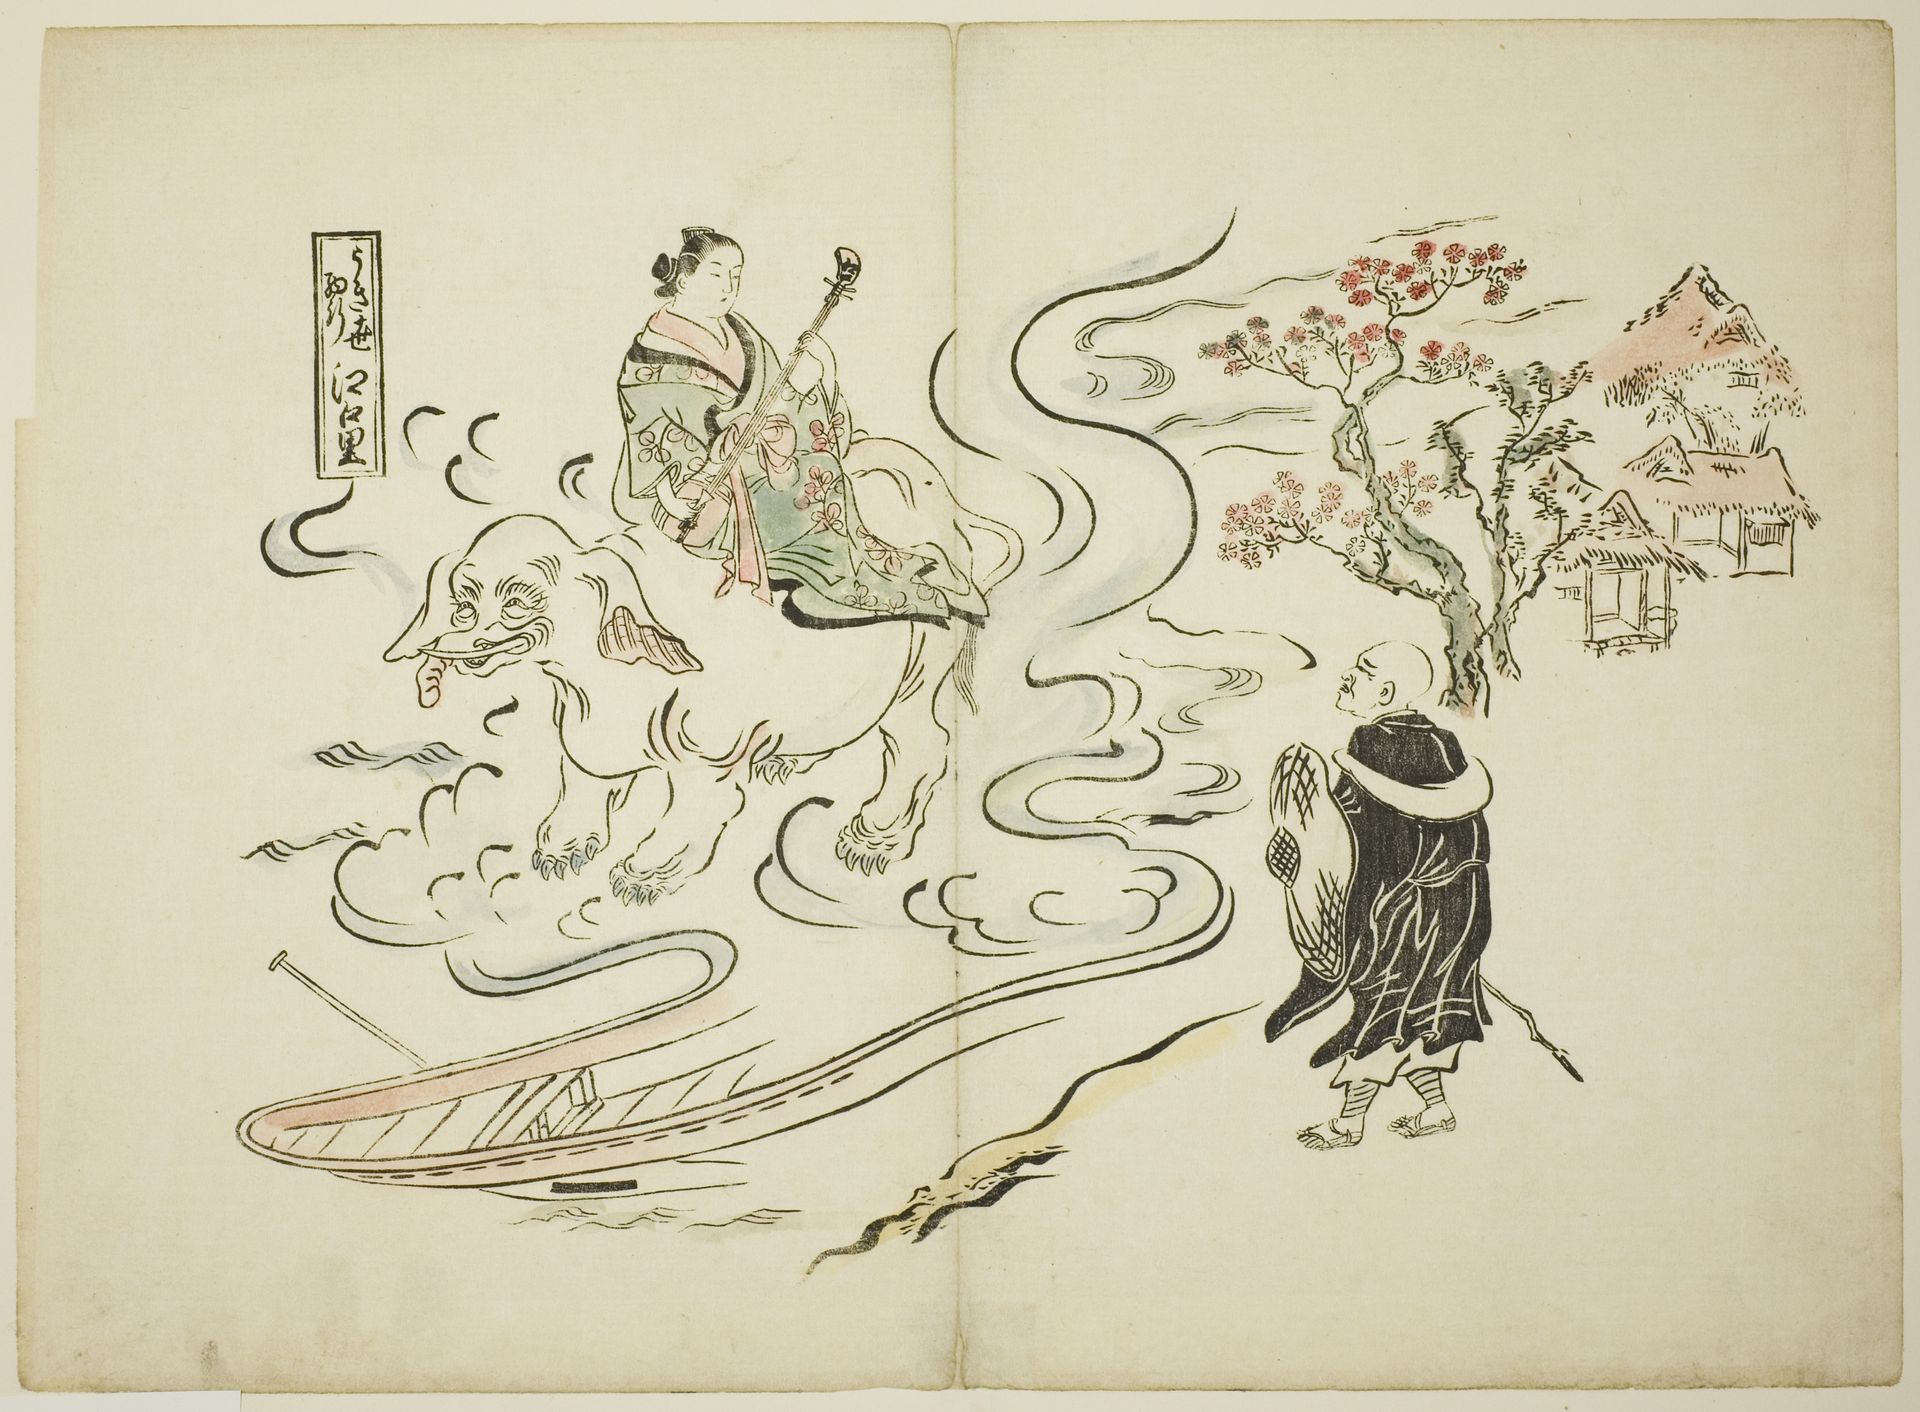 うき世
江口里